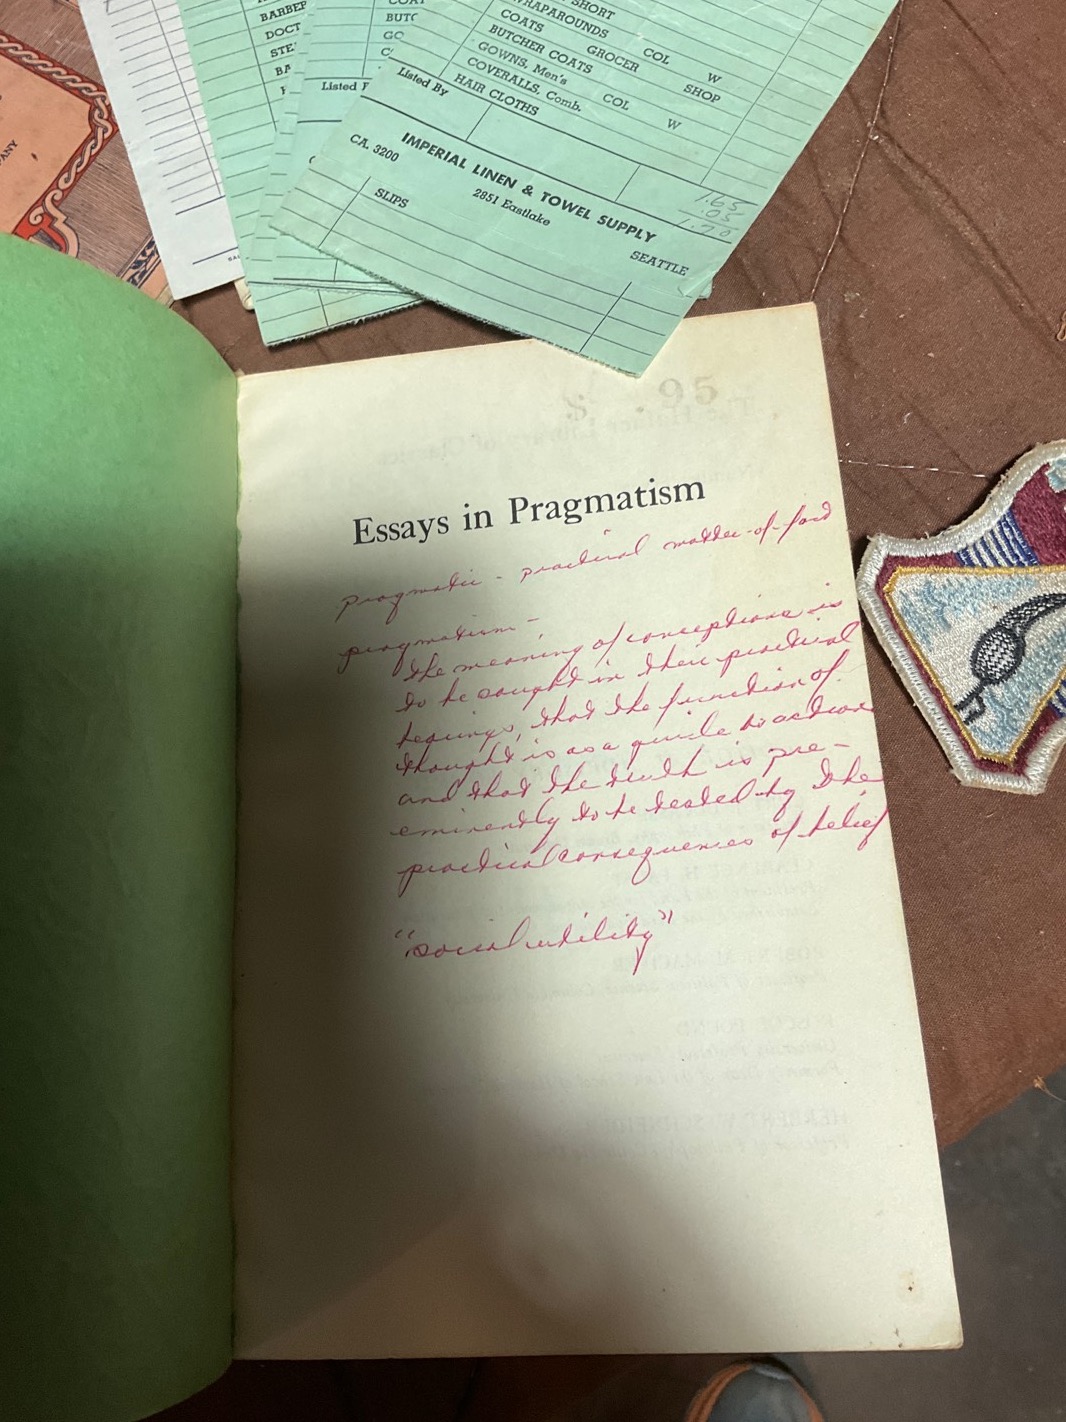 BARBER
DOCT
STE
BA
COAT
BUTC
GO
C
Listed F
SHORT
WRAPAROUNDS
COL W
COATS
GROCER SHOP
BUTCHER COATS
GOWNS, Men's
COL W
COVERALLS, Comb.
HAIR CLOTHS
Listed By
IMPERIAL LINEN & TOWEL SUPPLY
CA. 3200
2851 Eastlake
SEATTLE
SLIPS
1.65
.05
1.70
$ .95
Essays in Pragmatism
pragmatic - practical matter-of-fact
pragmatism -
the meaning of conceptions is
to be sought in their practical
bearings, that the function of
thought is as a guide to action
and that the truth is pre-
eminently to be tested by the
practical consequences of belief
"social utility"